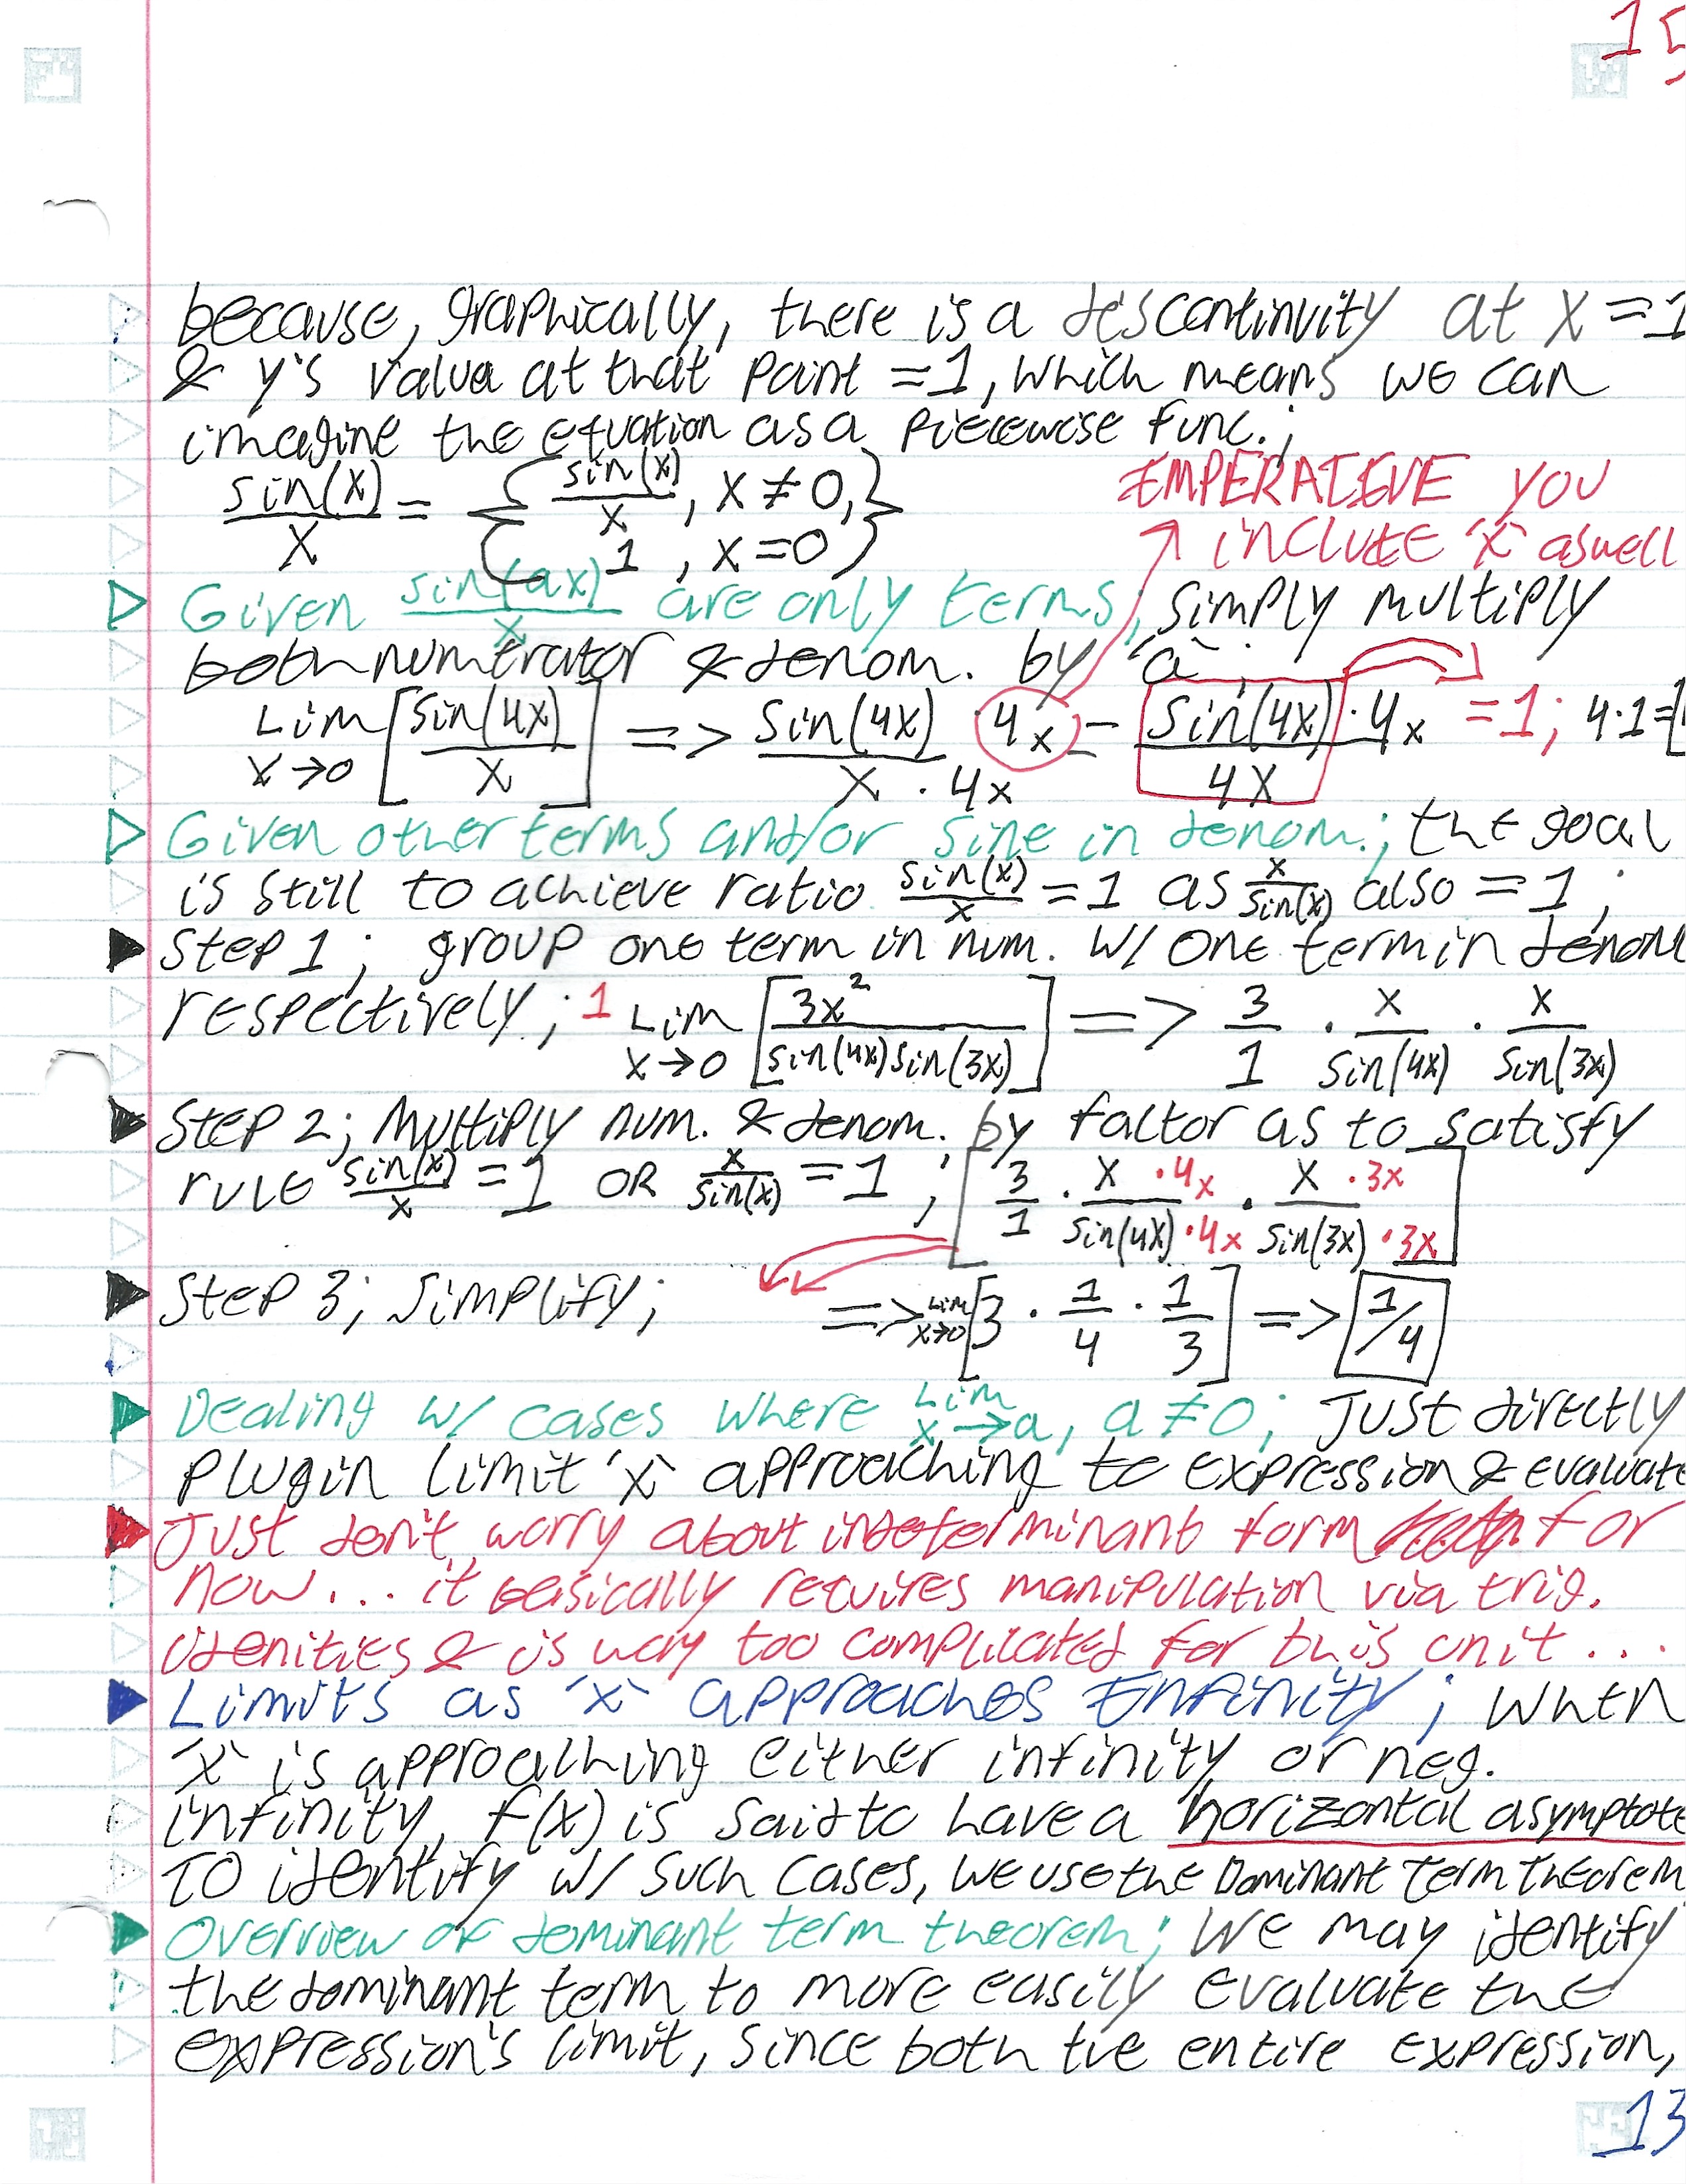 15
because, graphically, there is a discontinuity at x = 1
& y's value at that point = 1, which means we can
imagine the equation as a piecewise func.;
sin(x)/x = { sin(x)/x, x ≠ 0, 1, x = 0 }
IMPERATIVE YOU
include 'x' aswell
Given sin(ax)/x are only terms; simply multiply
both numerator & denom. by 'a';
Lim x→0 [sin(4x)/x] => sin(4x)/x · 4x/4x = sin(4x)/4x · 4x = 1; 4·1=
Given other terms and/or sine in denom.; the goal
is still to achieve ratio sin(x)/x = 1 as x/sin(x) also = 1;
Step 1; group one term in num. w/ one term in denom
respectively; 1 Lim x→0 [3x²/sin(4x)sin(3x)] => 3/1 · x/sin(4x) · x/sin(3x)
Step 2; Multiply num. & denom. by factor as to satisfy
rule sin(x)/x = 1 OR x/sin(x) = 1; [3/1 · x·4x/sin(4x)·4x · x·3x/sin(3x)·3x]
Step 3; simplify; => Lim x→0 [3 · 1/4 · 1/3] => 1/4
Dealing w/ cases where Lim x→a, a ≠ 0; Just directly
plugin limit 'x' approaching to expression & evaluate
Just don't worry about indeterminant form for
now... it basically requires manipulation via trig.
idenities & is way too complicated for this unit...
Limits as 'x' approaches Infinity; when
'x' is approaching either infinity or neg.
infinity, f(x) is said to have a horizontal asymptote
To identify w/ such cases, we use the Dominant Term Theorem
Overview of dominant term theorem; We may identify
the dominant term to more easily evaluate the
expression's limit, since both the entire expression,
13